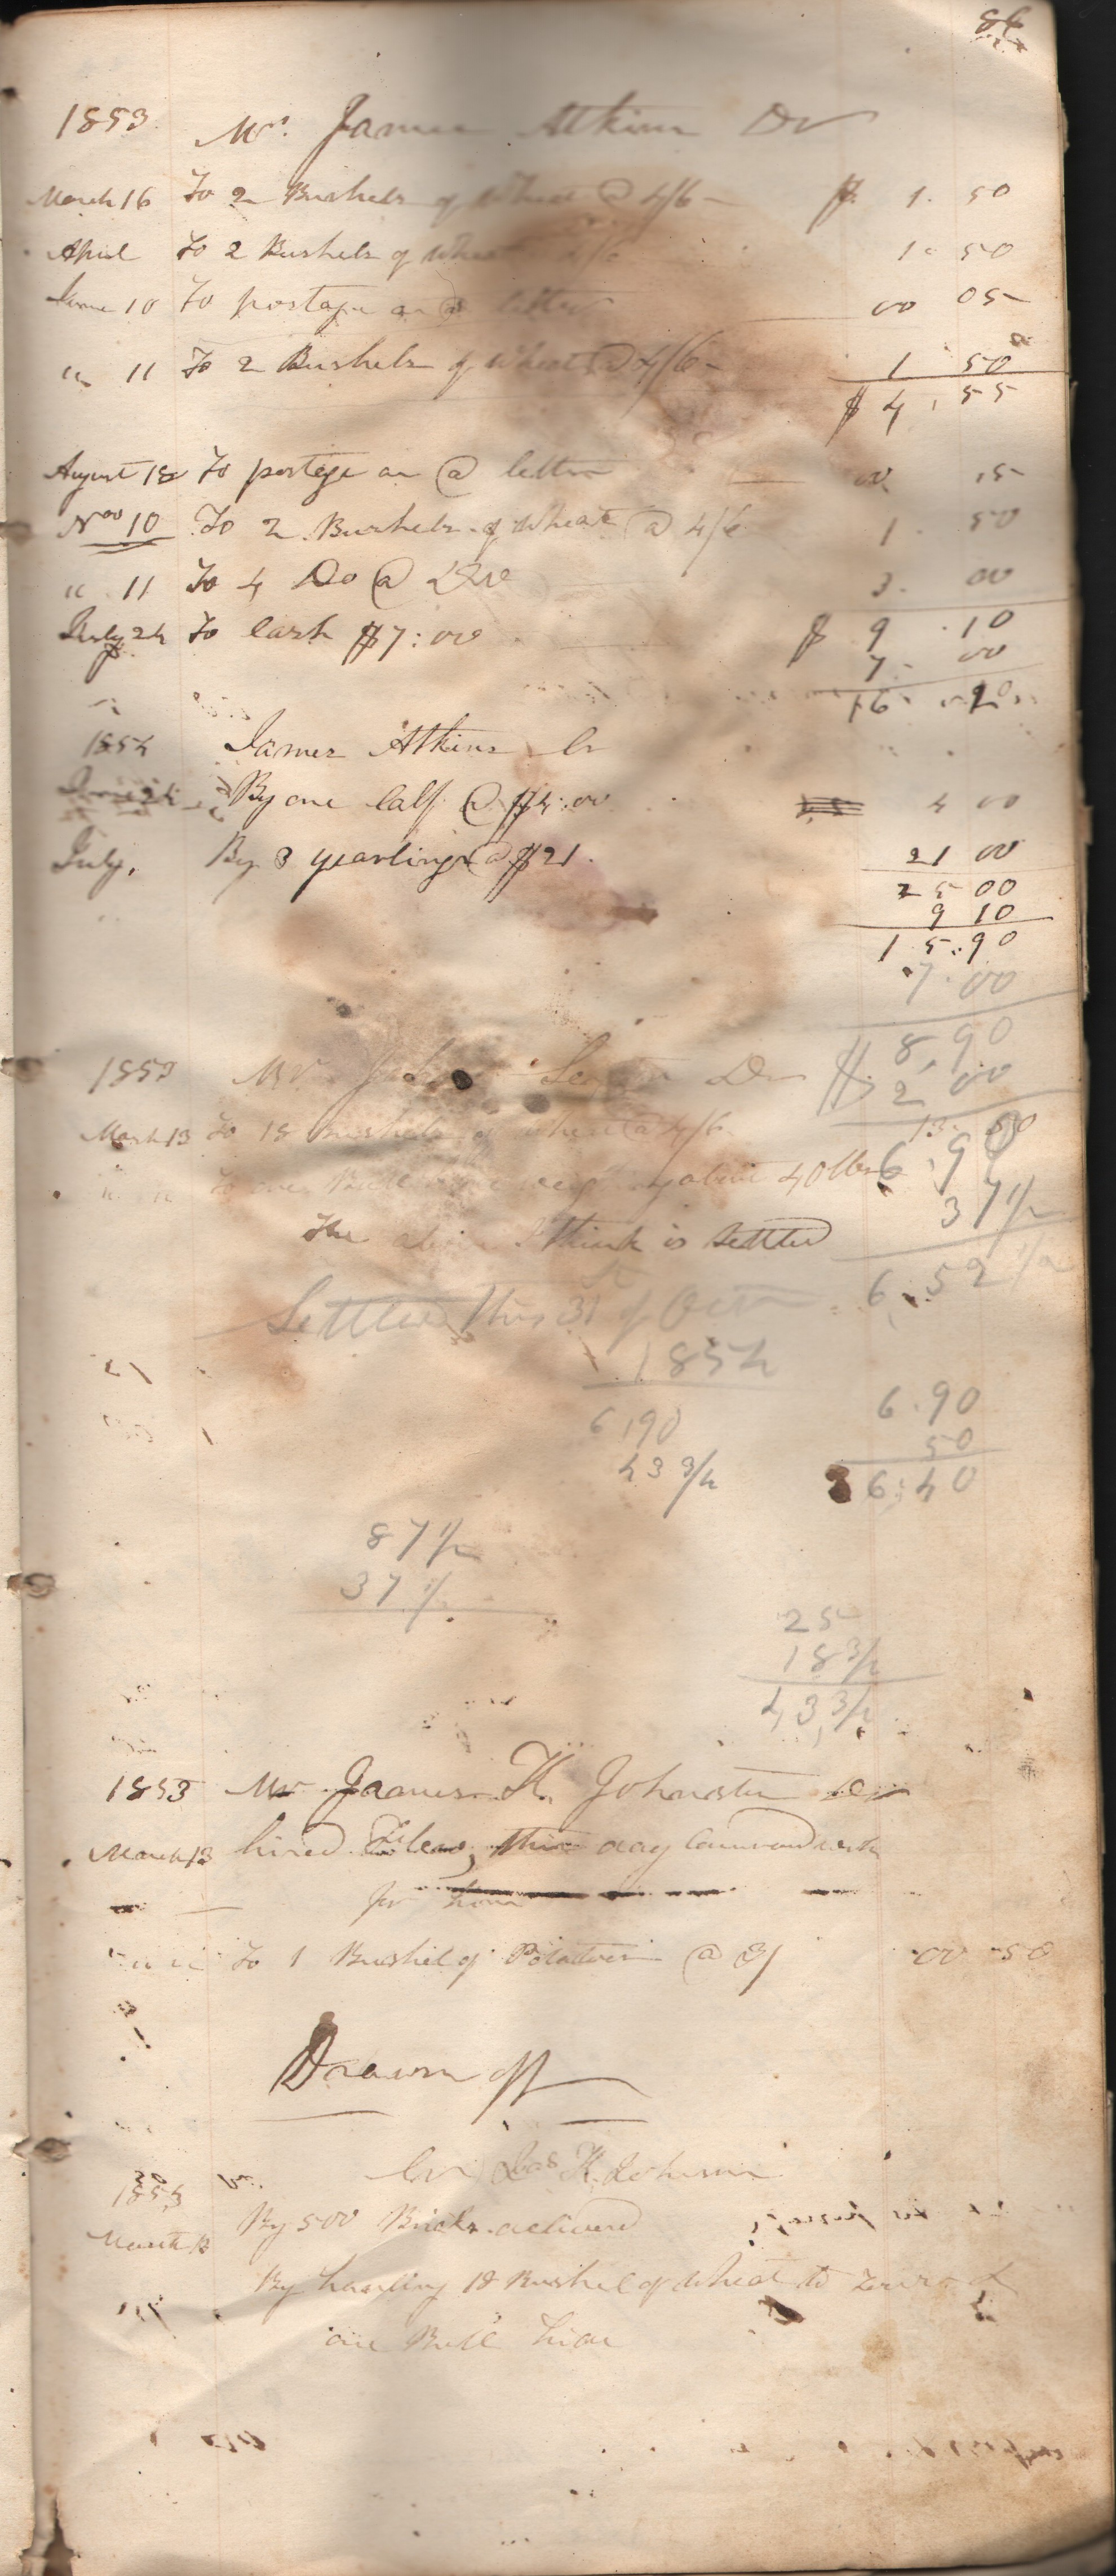 86
1853 Mr. James Atkins Dr
March 16 To 2 Bushels of Wheat @ 4/6 $ 1.50
April To 2 Bushels of Wheat 1.50
June 10 To postage on @ letter 00 05
" 11 To 2 Bushels of Wheat @ 4/6 1 50
$ 4,55
August 18 To postage on @ letter 00 05
Nov 10 To 2 Bushels of Wheat @ 4/6 1.50
" 11 To 4 Do @ 3.00
July 24 To Cash $7:00 $ 9.10
7.00
16
1854 James Atkins Cr
By one Calf @ $4:00 4 00
July, By 3 yearlings @ $21. 21 00
25 00
9 10
15.90
7.00
$ 8,90
2 00
1853 Mr. Dr
March 13 To 18 Bushels of Wheat @ 4/6 13.50
" " To one about 40 lbs
6,90
37 1/2
The above I think is Settled
6.52 1/2
Settled this 31st of Octr
1854
6,90
43 3/4
6.90
50
6.40
87 1/2
37 1/2
25
18 3/4
43 3/4
1853 Mr James H. Johnston Dr
March 13 hired this day
for
" " To 1 Bushel of Potatoes @ 3/ 00 50
Drawn off
Cr Jas H. Johnson
1853
March 13 By 500 Bricks delivered
By hauling 18 Bushel of Wheat to
one Bull hide